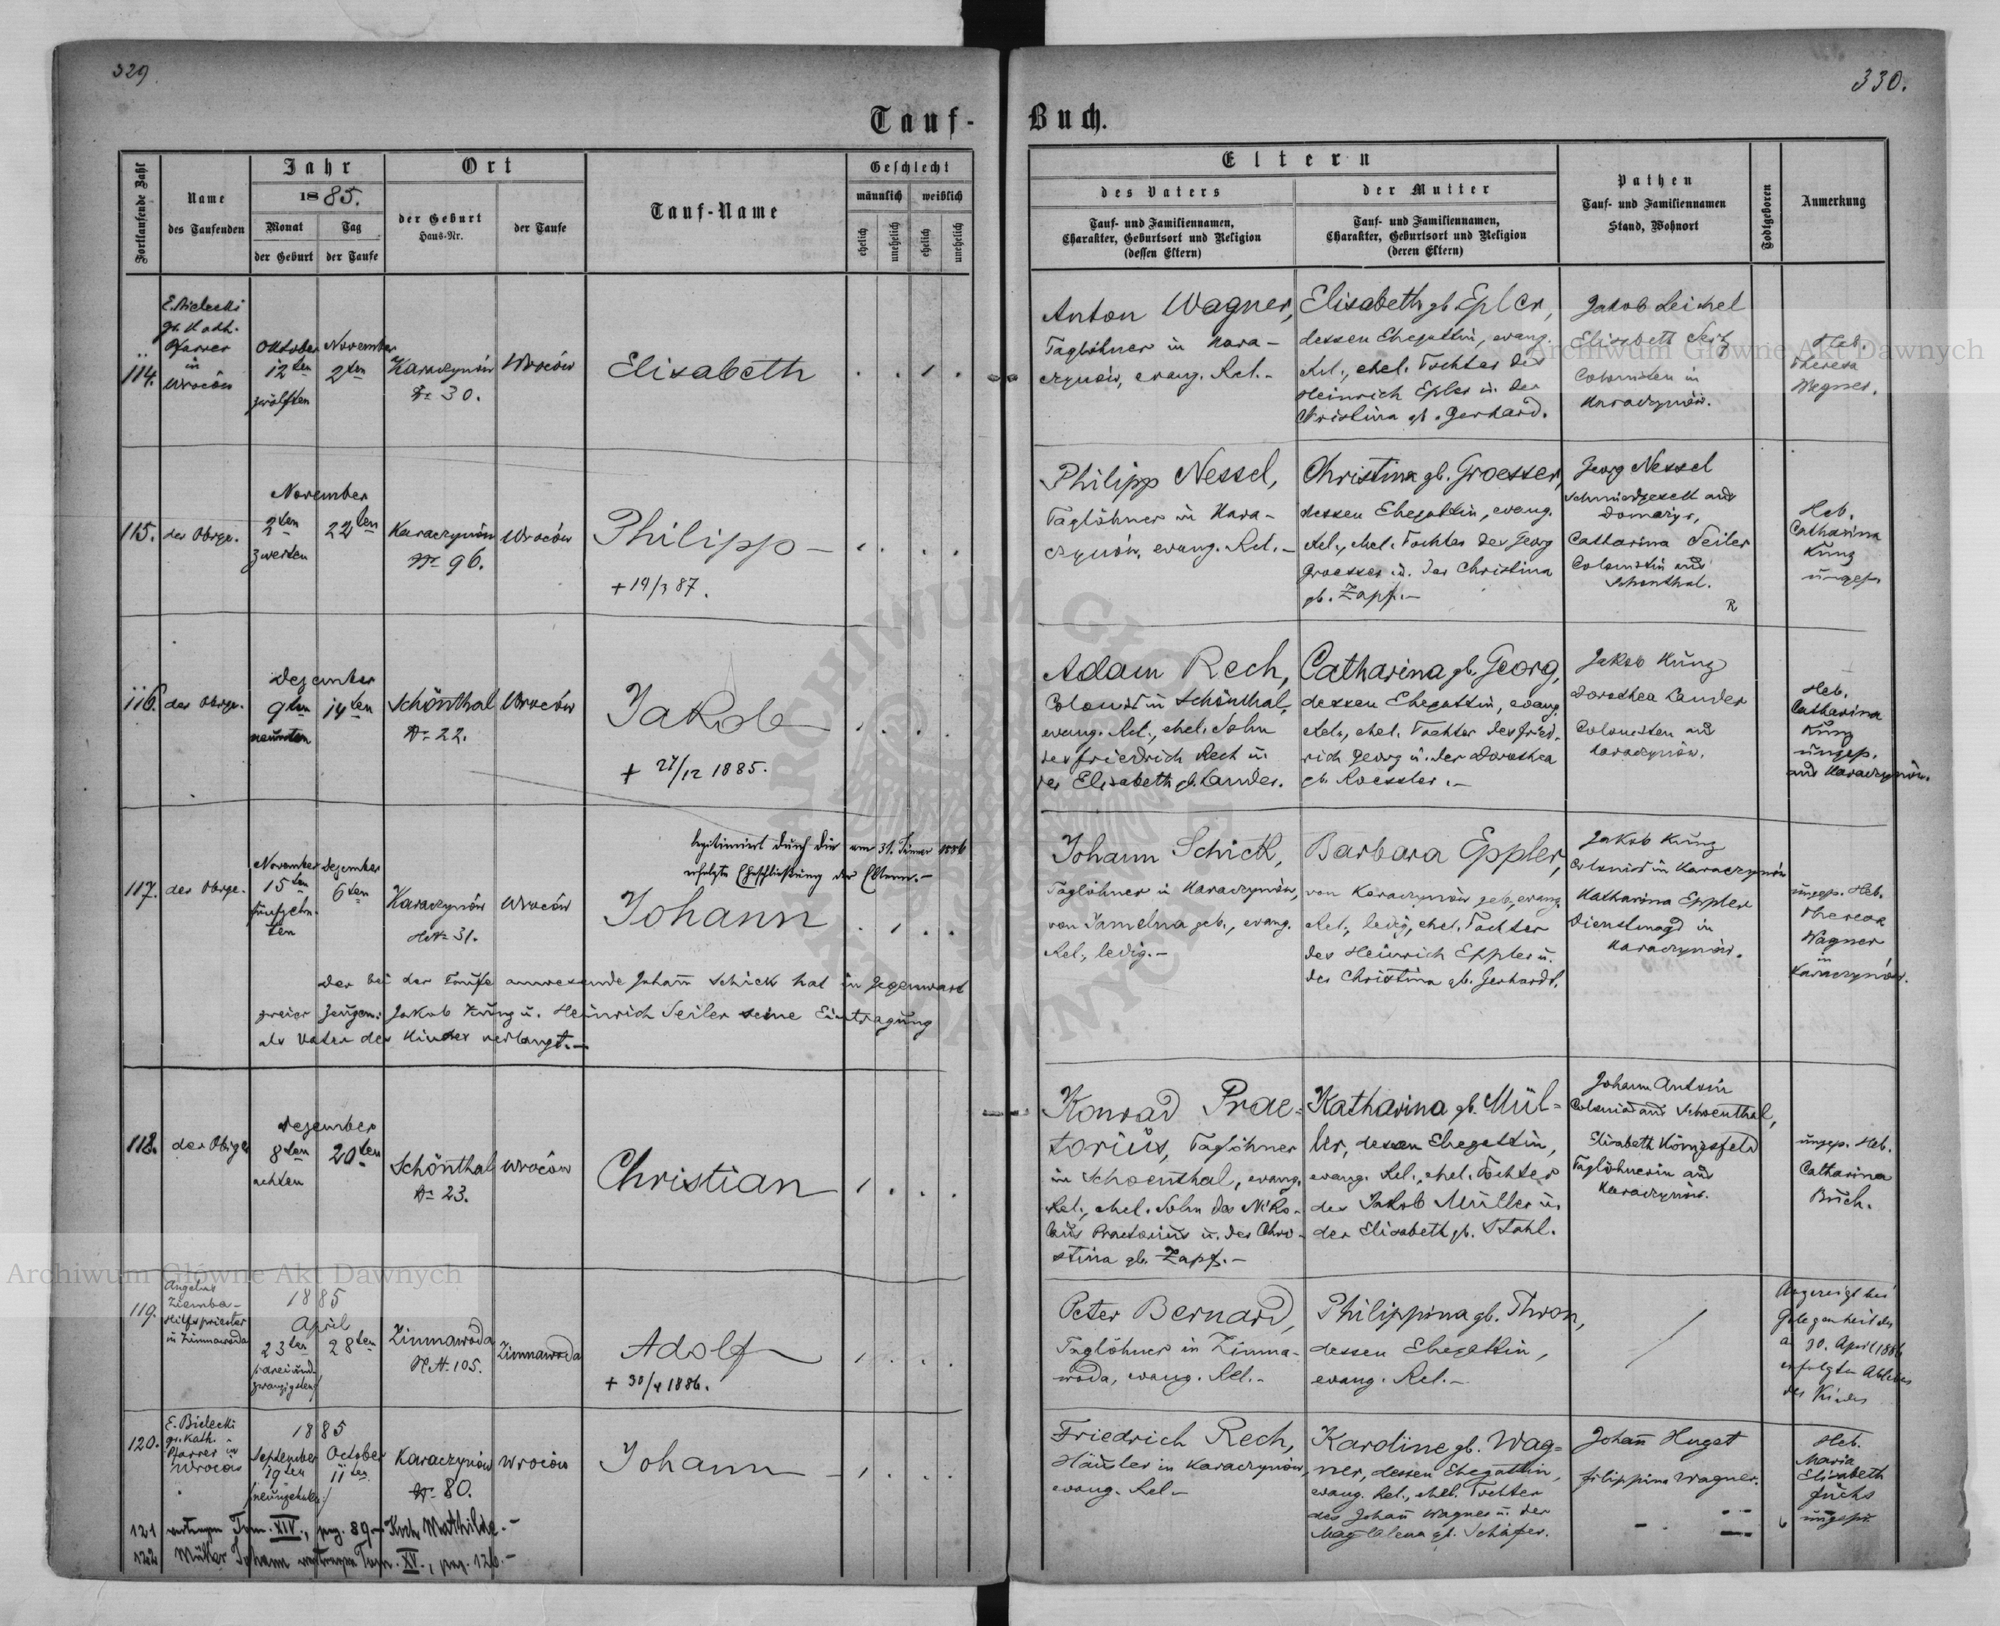 329
330.
Tauf-
Buch.
Fortlaufende Zahl
Name
des Taufenden
Jahr
1885.
Monat
der Geburt
Tag
der Taufe
Ort
der Geburt
Haus-Nr.
der Taufe
Tauf-Name
Geschlecht
männlich
weiblich
ehelich
unehelich
ehelich
unehelich
Eltern
des Vaters
Tauf- und Familiennamen,
Charakter, Geburtsort und Religion
(dessen Eltern)
der Mutter
Tauf- und Familiennamen,
Charakter, Geburtsort und Religion
(deren Eltern)
Pathen
Tauf- und Familiennamen
Stand, Wohnort
Todtgeboren
Anmerkung
114.
E. Bielecki
gr. Kath.
Pfarrer
in
Wroców
Oktober
12ten
zwölften
November
2ten
Karaczynów
Nr 30.
Wroców
Elisabeth
Anton Wagner,
Taglöhner in Kara-
czynów, evang. Rel.-
Elisabeth gb Epler,
dessen Ehegattin, evang.
Rel., ehel. Tochter des
Heinrich Epler u. der
Kristina gb. Gerhard.
Jakob Leichel
Elisabeth
Colonisten in
Karaczynów.
Heb.
Theresa
Wagner.
115.
der Obige.
November
2ten
zweiten
22ten
Karaczynów
Nr 96.
Wroców
Philipp-
+ 19/3 87.
Philipp Nessel,
Taglöhner in Kara-
czynów, evang. Rel.-
Christina gb. Groesser,
dessen Ehegattin, evang.
Rel., ehel. Tochter des Georg
Groesser u. der Christina
gb. Zapf.-
Georg Nessel
Schmiedgesell aus
Domażyr,
Catharina Seiler
Colonistin aus
Schönthal.
R
Heb.
Catharina
Küng
ungep.
116.
der Obige.
Dezember
9ten
neunten
14ten
Schönthal
Nr 22.
Wroców
Jakob
+ 27/12 1885.
Adam Rech,
Colonist in Schönthal,
evang. Rel., ehel. Sohn
des Friedrich Rech u.
der Elisabeth gb. Lander.
Catharina gb. Georg,
dessen Ehegattin, evang.
Rel., ehel. Tochter des Fried-
rich Georg u. der Dorothea
gb. Roessler.-
Jakob Küng
Dorothea Lander
Colonisten aus
Karaczynów.
Heb.
Catharina
Küng
ungep.
aus Karaczynów.
117.
der Obige.
November
15ten
fünfzehn-
ten
Dezember
6ten
Karaczynów
HNr 31.
Wroców
legitimirt durch die am 31. Jänner 1886
erfolgte Eheschließung der Eltern.-
Johann
der bei der Taufe anwesende Johann Schick hat in Gegenwart
zweier Zeugen: Jakob Küng u. Heinrich Seiler seine Eintragung
als Vater des Kindes verlangt.-
Johann Schick,
Taglöhner in Karaczynów,
von Jamelna geb., evang.
Rel., ledig.-
Barbara Eppler,
von Karaczynów geb, evang.
Rel., ledig, ehel. Tochter
des Heinrich Eppler u.
der Christina gb. Gerhardt.
Jakob Küng
Colonist in Karaczynów
Katharina Eppler
Dienstmagd in
Karaczynów.
ungep. Heb.
Theresa
Wagner
in
Karaczynów.
118.
der Obige
Dezember
8ten
achten
20ten
Schönthal
Nr 23.
Wroców
Christian
Konrad Prae-
torius, Taglöhner
in Schoenthal, evang.
Rel., ehel. Sohn des Niko-
laus Praetorius u. der Chri-
stina gb. Zapf.-
Katharina gb. Mül-
ler, dessen Ehegattin,
evang. Rel., ehel. Tochter
des Jakob Müller u.
der Elisabeth gb. Stahl.
Johann Antoni
Colonist aus Schoenthal,
Elisabeth Königsfeld
Taglöhnerin aus
Karaczynów.
ungep. Heb.
Catharina
Buch.
119.
Angelus
Ziemba-
Hilfspriester
in Zimnawoda
1885
April
23ten
/dreiund
zwanzigsten/
28ten
Zimnawoda
N.H. 105.
Zimnawoda
Adolf
+ 30/4 1886.
Peter Bernard,
Taglöhner in Zimna-
woda, evang. Rel.-
Philippina gb. Thron,
dessen Ehegattin,
evang. Rel.-
Angezeigt bei
Gelegenheit des
a 30. April 1886
erfolgten Ablebens
des Kindes
120.
E. Bielecki
gr. kath.
Pfarrer in
Wroców
1885
September
19ten
/neunzehnten/
October
11ten
Karaczynów
Nr 80.
Wroców
Johann
Friedrich Rech,
Häusler in Karaczynów,
evang. Rel-
Karoline gb. Wag-
ner, dessen Ehegattin,
evang. Rel., ehel. Tochter
des Johann Wagner u. der
Magdalena gb. Schäfer.
Johann Huget
Filippina Wagner.
Heb.
Maria
Elisabeth
Fuchs
ungepr.
121 Tom. XIV., pag. 89- Koch Mathilde.-
122 Müller Johann Tom. XV., pag. 126.-
Archiwum Główne Akt Dawnych
Archiwum Główne Akt Dawnych